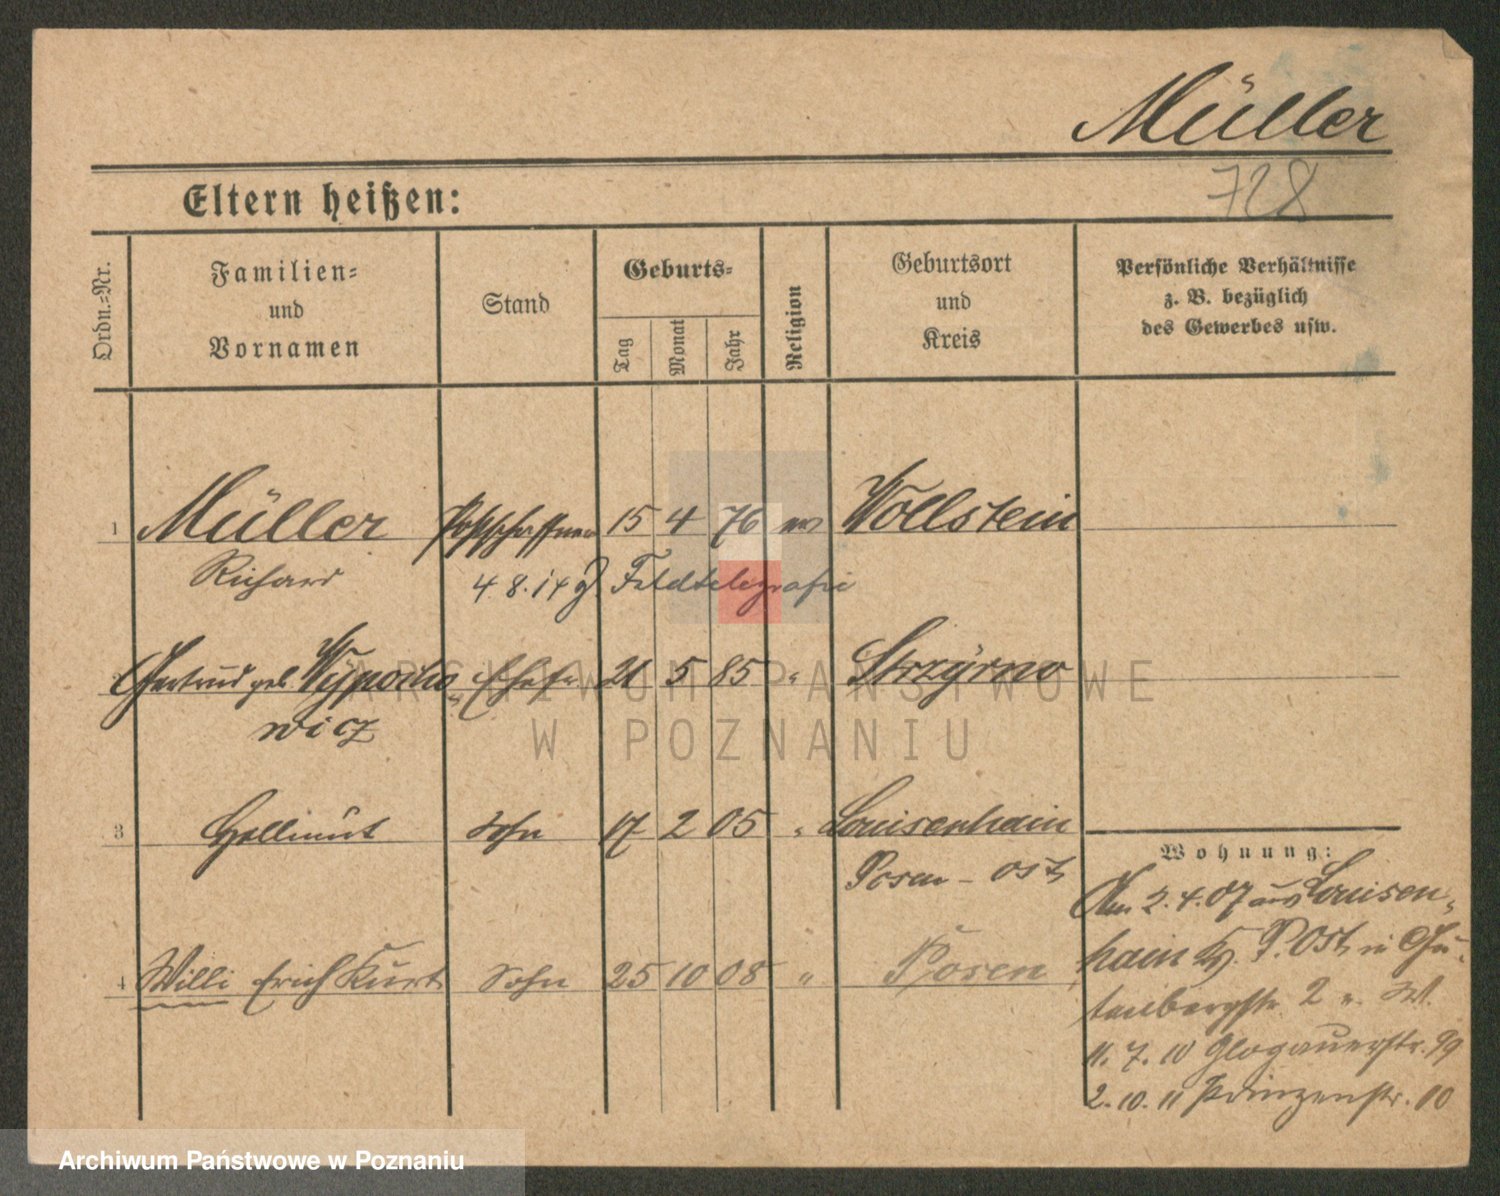 Müller
728
Eltern heißen:
Ordn.-Nr.
Familien-
und
Vornamen
Stand
Geburts-
Tag
Monat
Jahr
Religion
Geburtsort
und
Kreis
Persönliche Verhältnisse
z. B. bezüglich
des Gewerbes usw.
1 Müller Postschaffner 15 4 76 ev Wollstein
Richard 4. 8. 14 Feldtelegrafie
Gertrud geb. Wypocho Ehefr. 21 5 85 " Strzyrno
wicz
3 Hellmut Sohn 17 2 05 " Louisenhain
Posen - Ost
4 Willi Erich Kurt Sohn 25 10 08 " Posen
Wohnung:
Am 2. 4. 07 aus Louisen-
hain Kr. P. Ost in Gu-
tenbergstr. 2 v. W.
11. 7. 10 Glogauerstr. 99
2. 10. 11 Prinzenstr. 10
ARCHIWUM PAŃSTWOWE
W POZNANIU
Archiwum Państwowe w Poznaniu